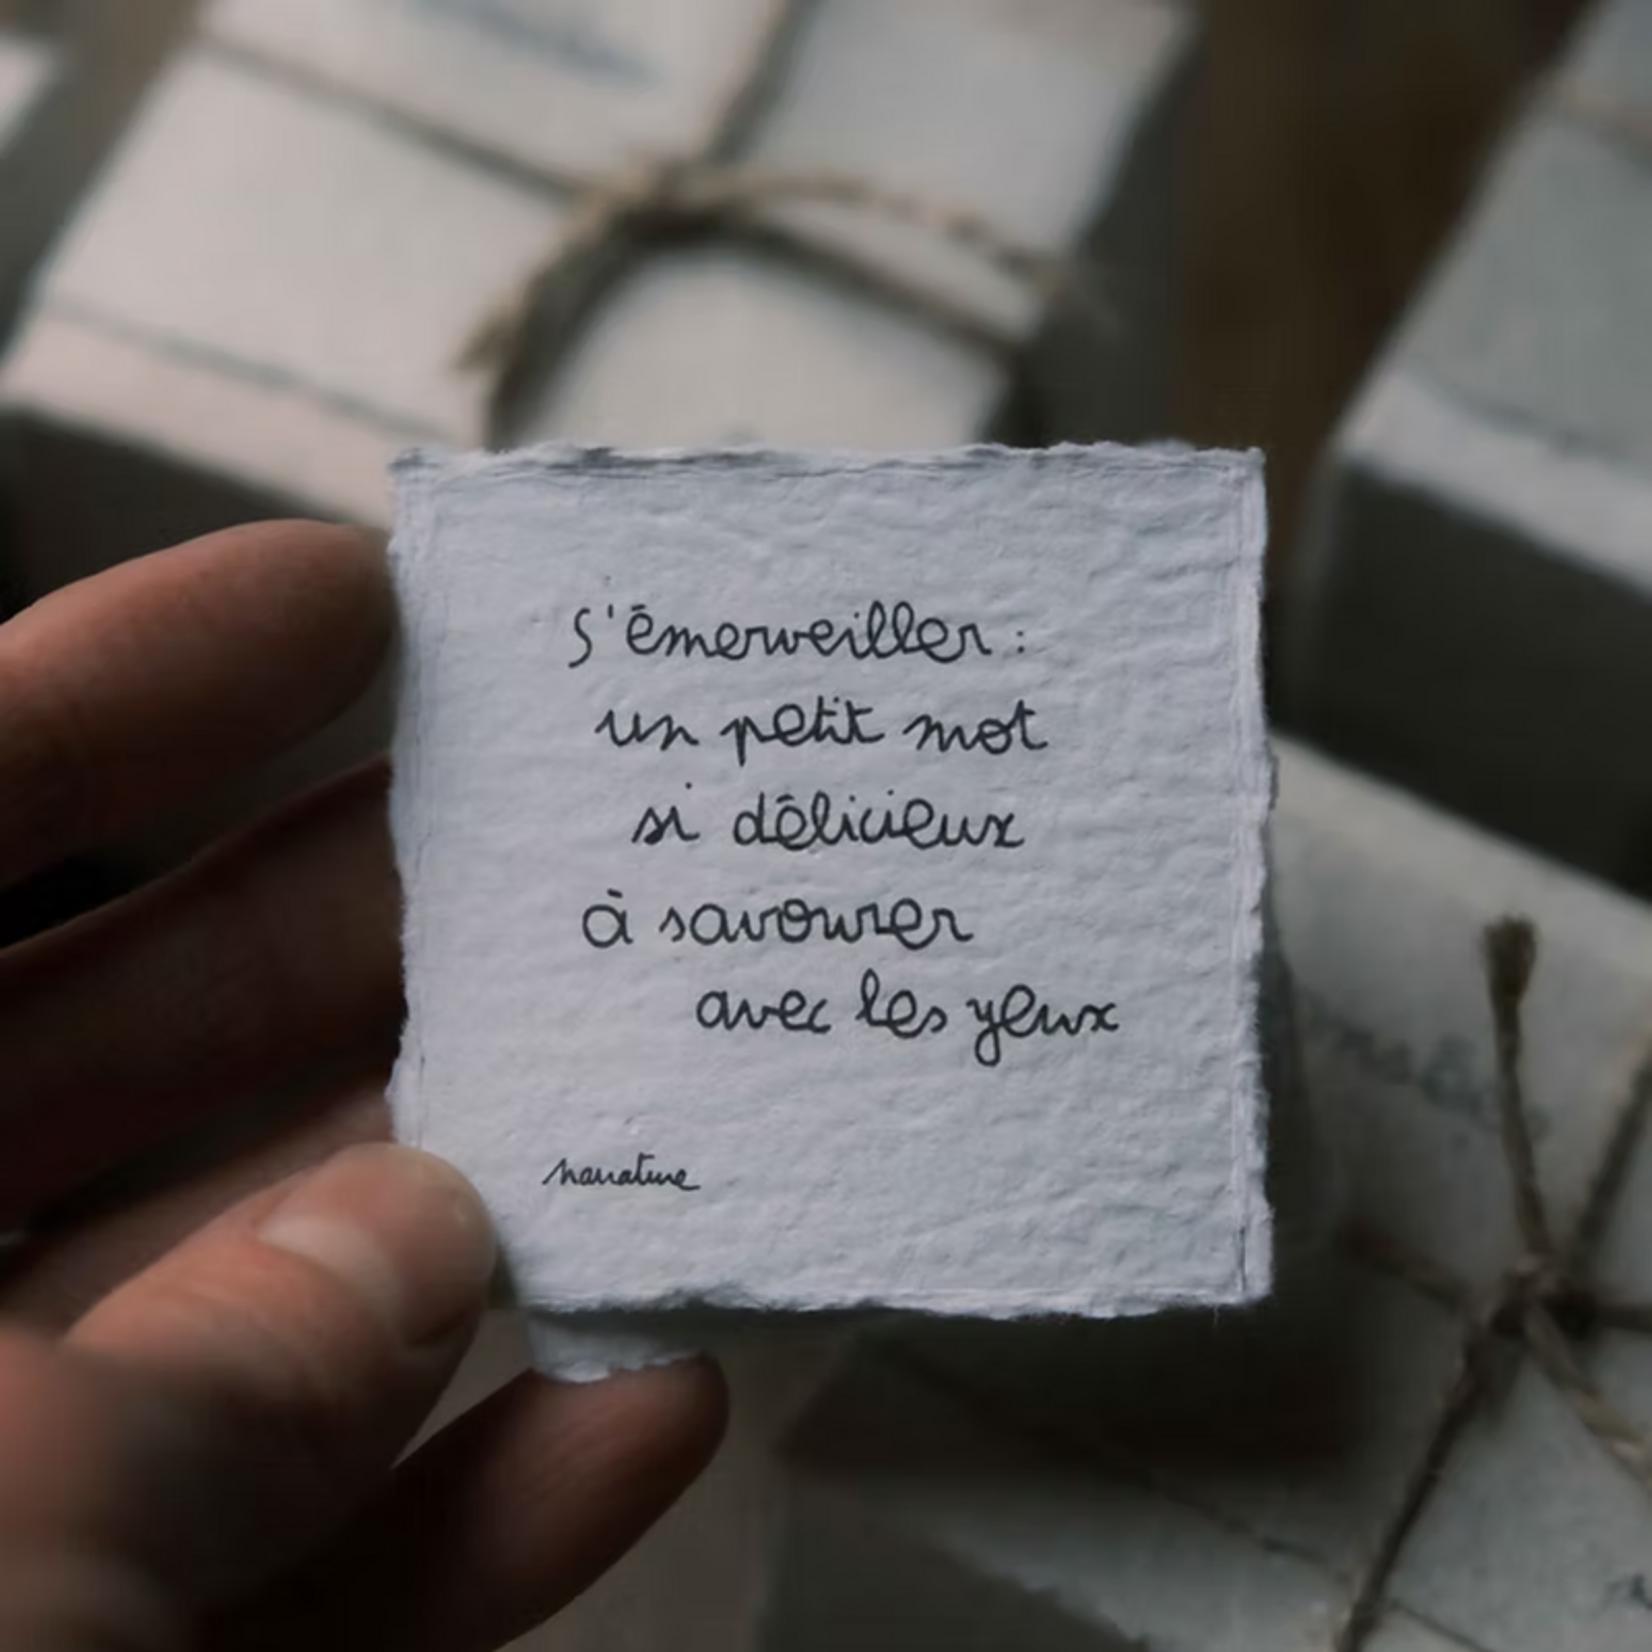 S'émerveiller :
un petit mot
si délicieux
à savourer
avec les yeux